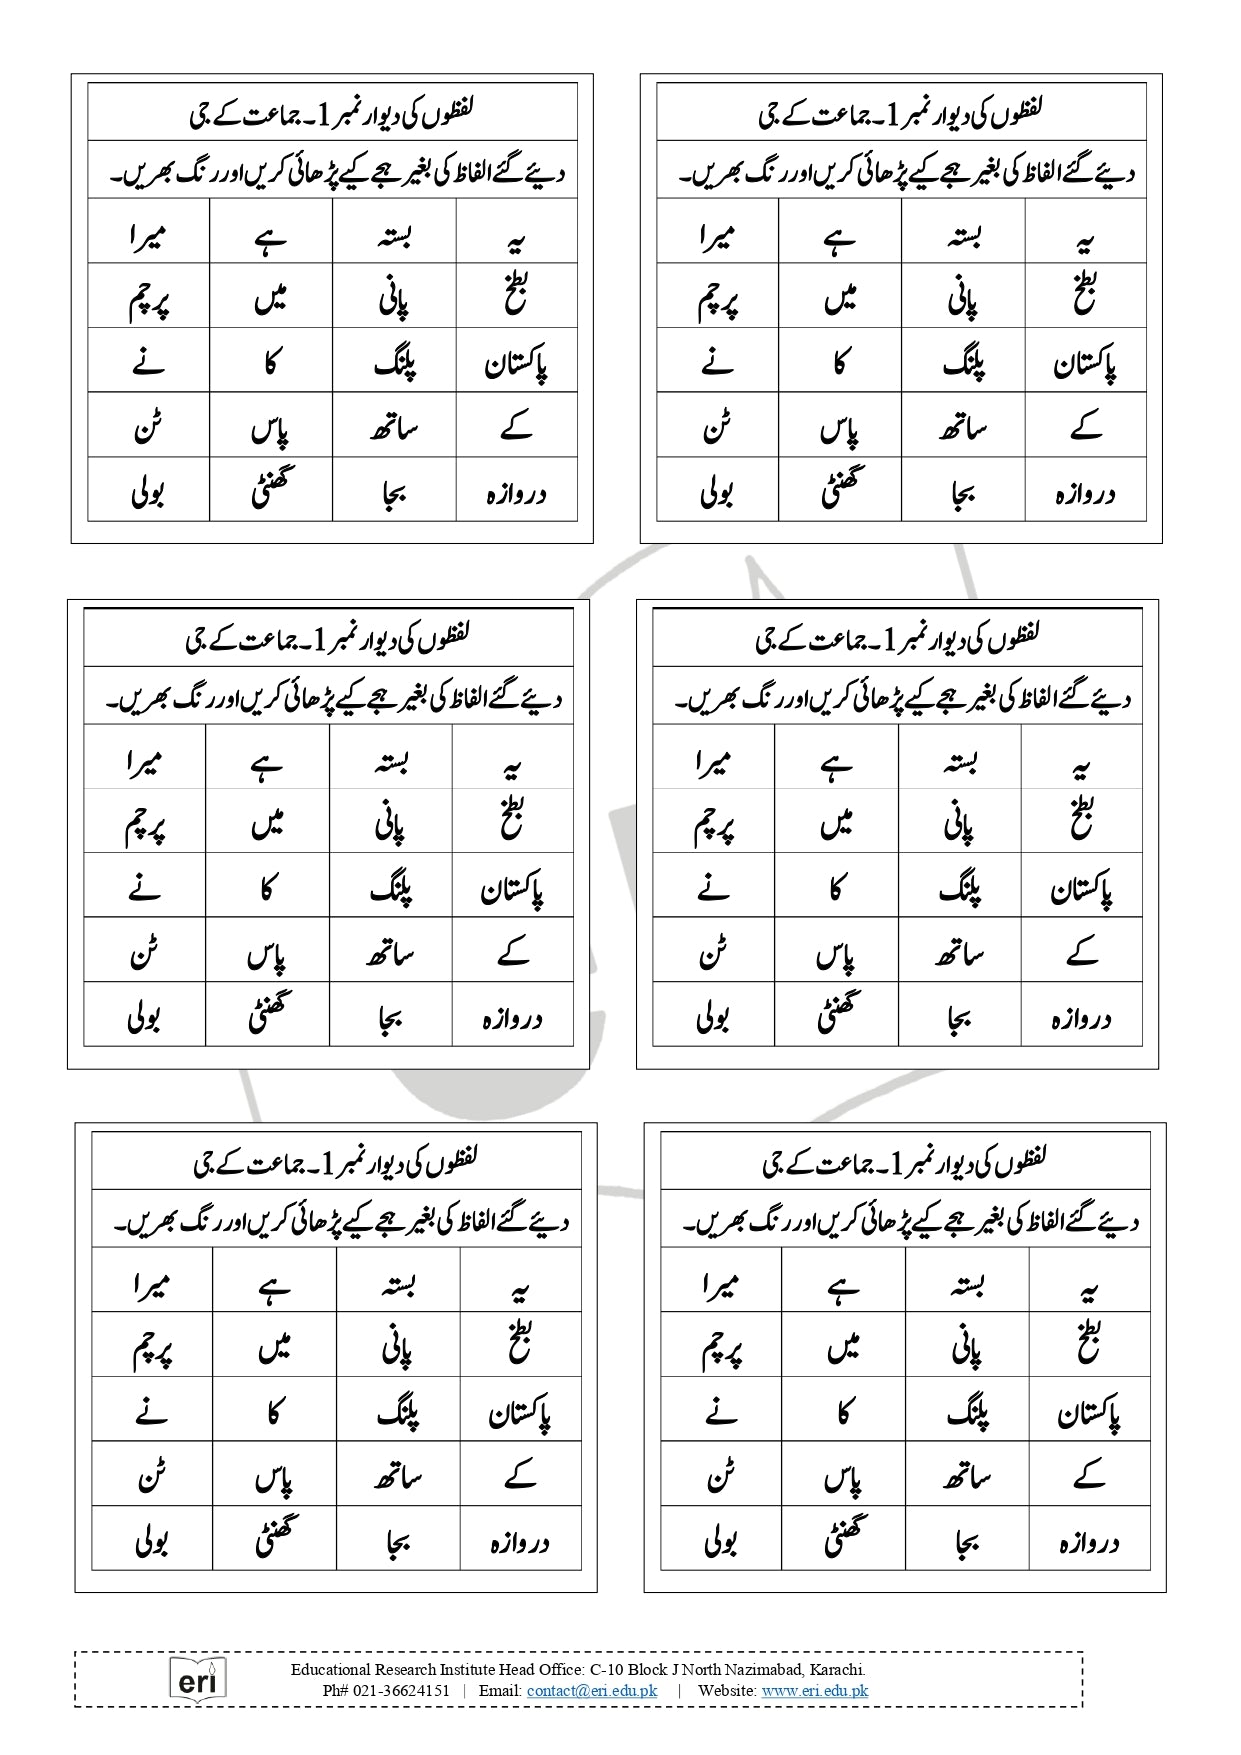 لفظوں کی دیوار نمبر 1۔ جماعت کے جی
دیئے گئے الفاظ کی بغیر ہجے کیے پڑھائی کریں اور رنگ بھریں۔
یہ بستہ ہے میرا
بطخ پانی میں پرچم
پاکستان پلنگ کا نے
کے ساتھ پاس ٹن
دروازہ بجا گھنٹی بولی
لفظوں کی دیوار نمبر 1۔ جماعت کے جی
دیئے گئے الفاظ کی بغیر ہجے کیے پڑھائی کریں اور رنگ بھریں۔
یہ بستہ ہے میرا
بطخ پانی میں پرچم
پاکستان پلنگ کا نے
کے ساتھ پاس ٹن
دروازہ بجا گھنٹی بولی
لفظوں کی دیوار نمبر 1۔ جماعت کے جی
دیئے گئے الفاظ کی بغیر ہجے کیے پڑھائی کریں اور رنگ بھریں۔
یہ بستہ ہے میرا
بطخ پانی میں پرچم
پاکستان پلنگ کا نے
کے ساتھ پاس ٹن
دروازہ بجا گھنٹی بولی
لفظوں کی دیوار نمبر 1۔ جماعت کے جی
دیئے گئے الفاظ کی بغیر ہجے کیے پڑھائی کریں اور رنگ بھریں۔
یہ بستہ ہے میرا
بطخ پانی میں پرچم
پاکستان پلنگ کا نے
کے ساتھ پاس ٹن
دروازہ بجا گھنٹی بولی
لفظوں کی دیوار نمبر 1۔ جماعت کے جی
دیئے گئے الفاظ کی بغیر ہجے کیے پڑھائی کریں اور رنگ بھریں۔
یہ بستہ ہے میرا
بطخ پانی میں پرچم
پاکستان پلنگ کا نے
کے ساتھ پاس ٹن
دروازہ بجا گھنٹی بولی
لفظوں کی دیوار نمبر 1۔ جماعت کے جی
دیئے گئے الفاظ کی بغیر ہجے کیے پڑھائی کریں اور رنگ بھریں۔
یہ بستہ ہے میرا
بطخ پانی میں پرچم
پاکستان پلنگ کا نے
کے ساتھ پاس ٹن
دروازہ بجا گھنٹی بولی
eri
Educational Research Institute Head Office: C-10 Block J North Nazimabad, Karachi.
Ph# 021-36624151 | Email: contact@eri.edu.pk | Website: www.eri.edu.pk